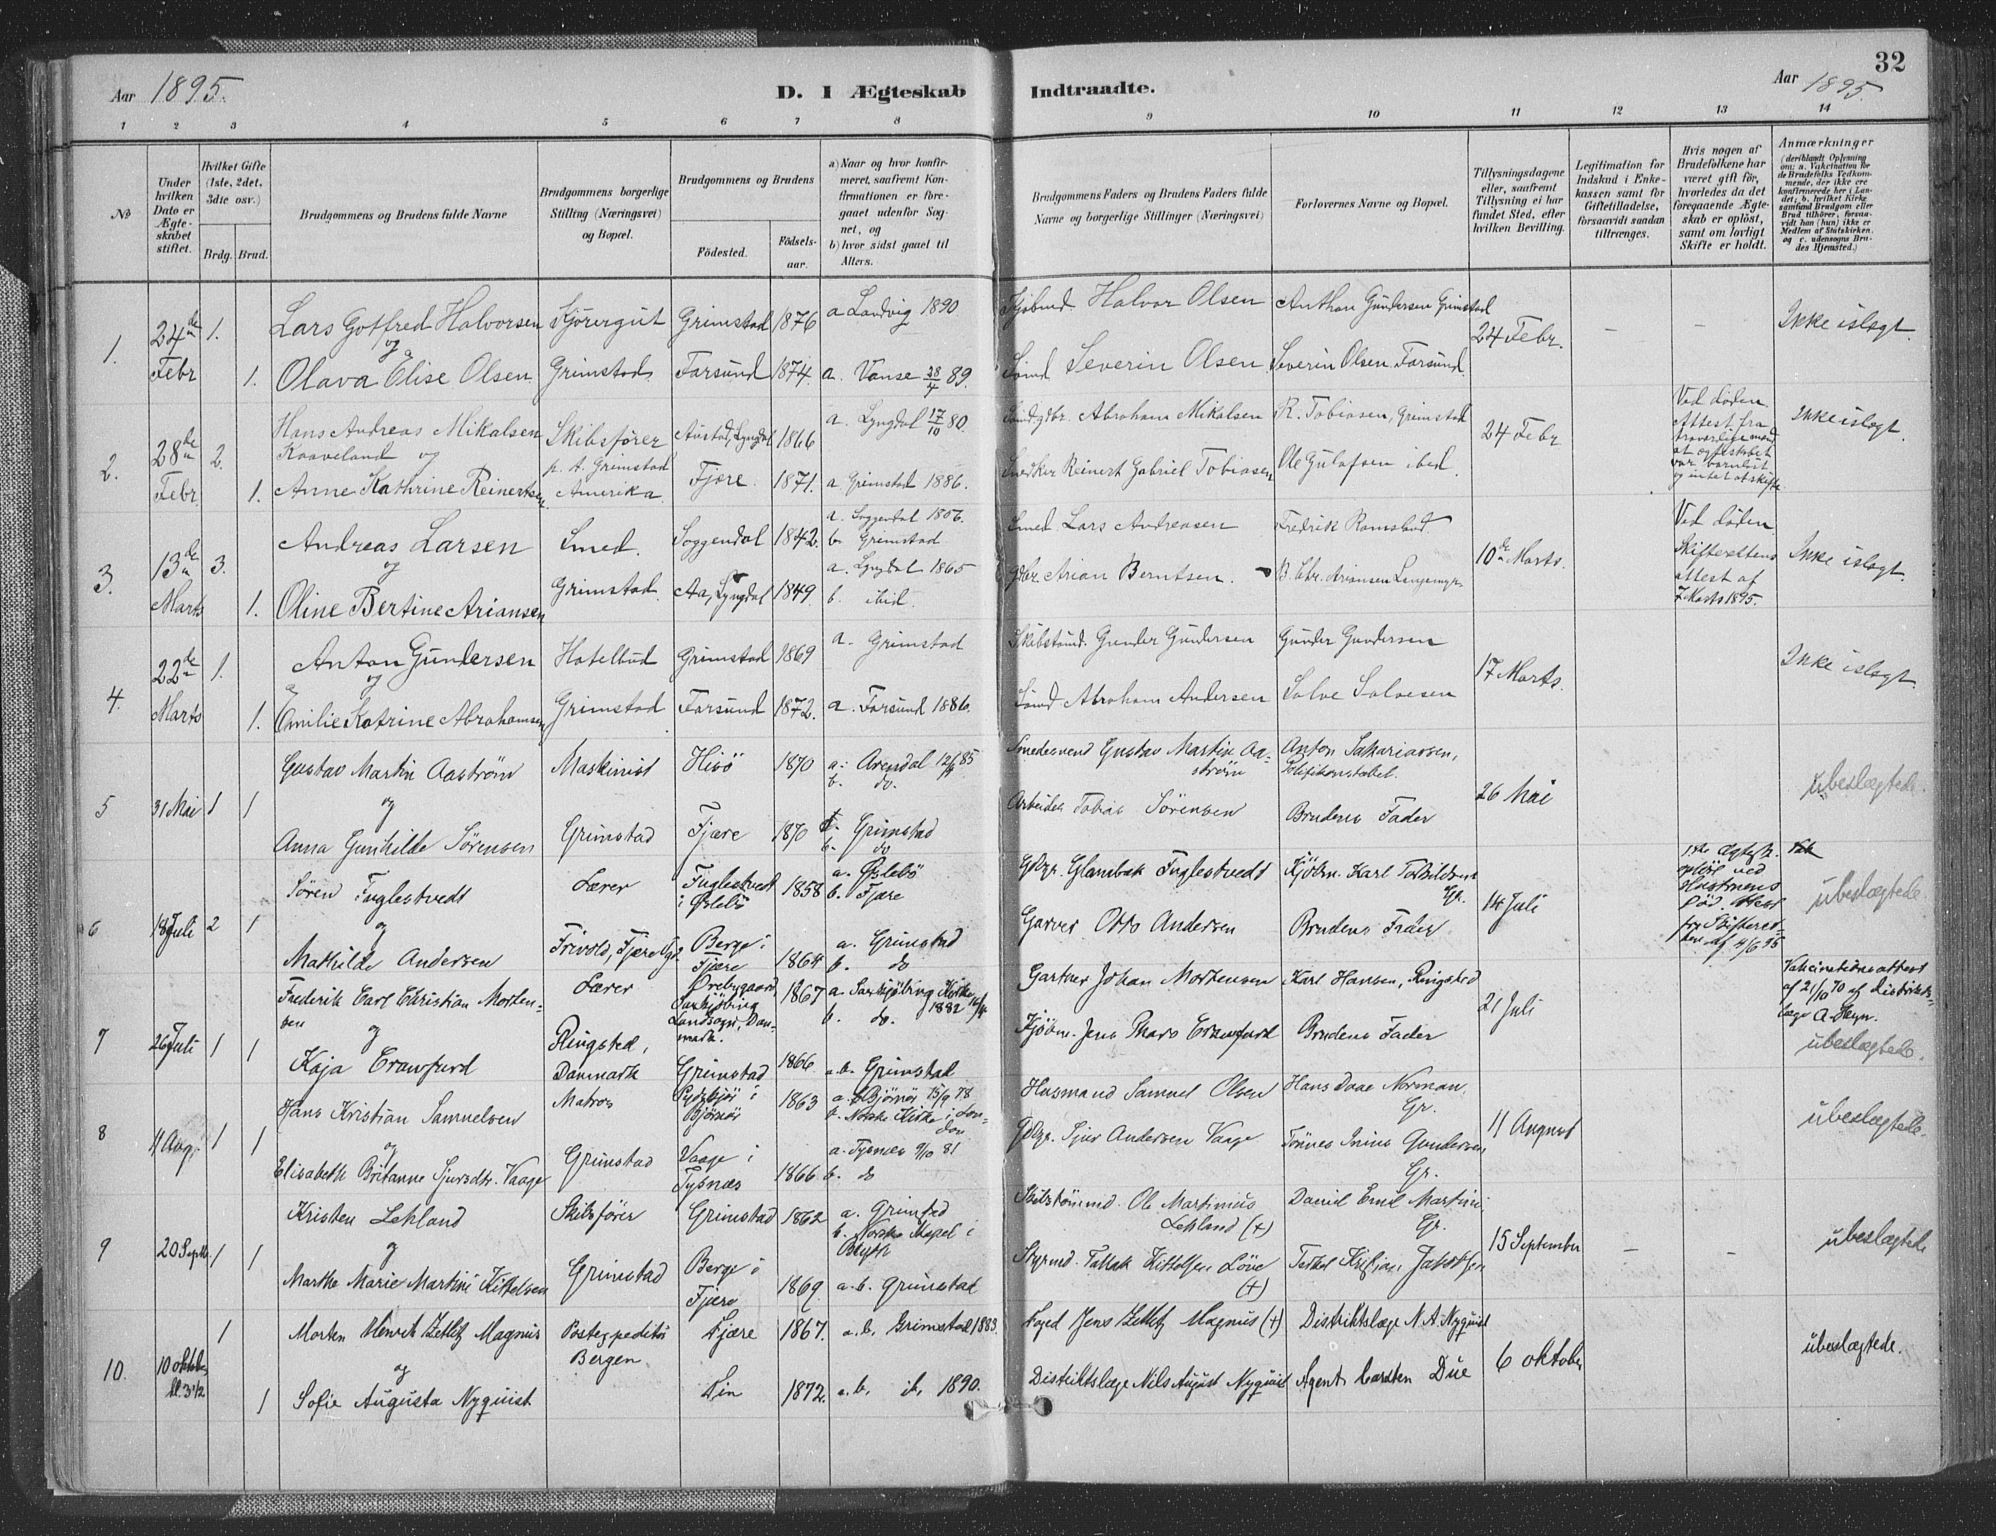 32
Aar 1895.
D. I Ægteskab Indtraadte.
Aar 1895.
1 2 3 4 5 6 7 8 9 10 11 12 13 14
No
Under hvilken Dato er Ægteskabet stiftet.
Hvilket Gifte (1ste, 2det, 3die osv.)
Brdg. Brud.
Brudgommens og Brudens fulde Navne
Brudgommens borgerlige Stilling (Næringsvei) og Bopæl.
Brudgommens og Brudens
Fødested.
Fødselsaar.
a) Naar og hvor konfirmeret, saafremt Konfirmationen er foregaaet udenfor Sognet, og
b) hvor sidst gaaet til Alters.
Brudgommens Faders og Brudens Faders fulde Navne og borgerlige Stillinger (Næringsvei)
Forlovernes Navne og Bopæl.
Tillysningsdagene eller, saafremt Tillysning ei har fundet Sted, efter hvilken Bevilling.
Legitimation for Indskud i Enkekassen samt for Giftetilladelse, forsaavidt saadan tiltrænges.
Hvis nogen af Brudefolkene har været gift før, hvorledes da det foregaaende Ægteskab er opløst, samt om lovligt Skifte er holdt.
Anmærkninger
(deriblandt Oplysning om: a. Vakcination for de Brudefolks Vedkommende, der ikke ere konfirmerede her i Landet; b. hvilket Kirkesamfund Brudgom eller Brud tilhører, forsaavidt han (hun) ikke er Medlem af Statskirken, og c. udensogns Brudes Hjemsted.)
1. 24de Febr 1. Lars Gotfred Halvorsen Kjørergut Grimstad 1876 a Landvig 1890 Halvor Olsen Anthon Gundersen Grimstad 24 Febr. – – Ikke islegt.
og
1. Olava Elise Olsen Grimstad Farsund 1874. a. Vanse 28/4 89. Sømd Severin Olsen Severin Olsen Farsund.
2. 28de Febr 2. Hans Andreas Mikalsen Skibsfører Austad, Lyngdal 1866 a. Lyngdal 17/10 80. Gdbr. Abraham Mikalsen R. Tobiasen, Grimstad 24 Febr Ved Døden Attest fra troværdige mænd at ægteskabet var barnløst og intet at skifte Ikke islegt.
Kaaveland og p. t. Grimstad
1. Anne Kathrine Reinertsen Amerika. Fjære. 1871. a Grimstad 1886. Snedker Reinert Gabriel Tobiasen Ole Gulafsen ibid.
3. 13de Marts 3. Andreas Larsen Smed. Soggendal 1842. a. Soggendal 1856. b. Grimstad Smed Lars Andreasen Fredrik Ramstad 10de Marts. Ved Døden Skifterettens attest af 7 Marts 1895. Ikke islegt.
og
1. Oline Bertine Ariansen Grimstad Aa, Lyngdal 1849. a. Lyngdal 1865 b. ibid. Gdbr. Arian Berntsen. B. Chr. Ariansen
4. 22de Marts 1. Anton Gundersen Hotelbud Grimstad 1869 a. Grimstad Gunder Gundersen Gunder Gundersen 17 Marts. Ikke islegt.
og
1. Emilie Katrine Abrahamsen Grimstad Farsund 1872. a. Farsund 1886. Sømd Abraham Andersen Salve Salvesen
5 31 Mai 1 1 Gustav Martin Aastrøm Maskinist Hisö 1870 a. Arendal 85 b. do. Smedesvend Gustav Martin Aastrøm Anton Sakariassen, Politikonstabel. 26 Mai ubeslægtede.
og
Anna Gunhilde Sørensen Grimstad Fjære 1870 Grimstad b. do Arbeider Tobias Sørensen Brudens Fader
6 18 Juli 2 1 Søren Fuglestvedt Lærer Fuglestvedt i Øslebø 1858 a. Øslebö b. Fjære Fuglestvedt Kjøbm. Karl Gr. 14 Juli 1ste Ægtesk. opløst ved Hustruens Død. Attest fra Skifteretten af 4/6 95 ubeslægtede.
og
Mathilde Andersen Frivold, Fjære Berge i Fjære 1864 a. Grimstad b. do Garver Otto Andersen Brudens Fader
7 26 Juli 1 1 Frederik Carl Christian Mortensen Lærer Orebygaard, Saxkjøbing Landsogn, Danmark. 1867 a. Saxkjøbing Kirke 1882 b. do. Gartner Johan Mortensen Karl Hansen, Ringsted 21 Juli Vakcinationsattest af 21/10 70 af Distriktslæge ubeslægtede.
og
Kaja Crawfurd Ringsted, Danmark Grimstad 1866 a. b. Grimstad Kjøbm. Jens Crawfurd Brudens Fader
8 11 Aug. 1 1 Hans Kristian Samuelsen Matros Bjørnør 1863 a. Bjørnör 15/9 78 b. Norske Kirke i London Husmand Samuel Olsen Hans Norman. Gr. 11 August ubeslægtede.
og
Elisabeth Britanne Sjursdtr. Vaage Grimstad Vaage i Tysnæs 1866 a. Tysnæs 9/10 81 b. do Sjur Andersen Vaage Tønnes Gundersen Gr.
9 20 Septbr. 1 1 Kristen Lekland Skibsfører Grimstad 1862 a. Grimstad b. Norske Kapel i Blyth Ole Martinius Lekland (+) Daniel Emil Martini Gr. 15 September – – ubeslægtede
og
Marthe Marie Martini Kittelsen Grimstad Berge i Fjære 1869. a. b. Grimstad Styrmd. Kittelsen Löve (+) Terkel Kristian
10. 10 oktober kl. 3 1/2 1 Morten Henrik Zetlitz Magnus Postexpeditør Fjære 1867. a. b. Grimstad 1883. Foged Jens Zetlitz Magnus (+) Distriktslæge N. A. Nyquist 6 oktober ubeslægtede.
og Bergen
1 Sofie Augusta Nyquist 1872. a. b. ib. 1890. Distriktslæge Nils August Nyquist Agent Carsten Due